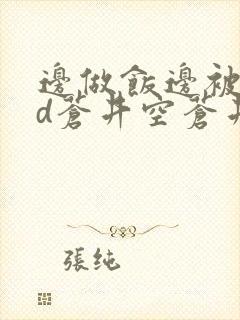 邊做飯邊被
d蒼井空蒼井
張純